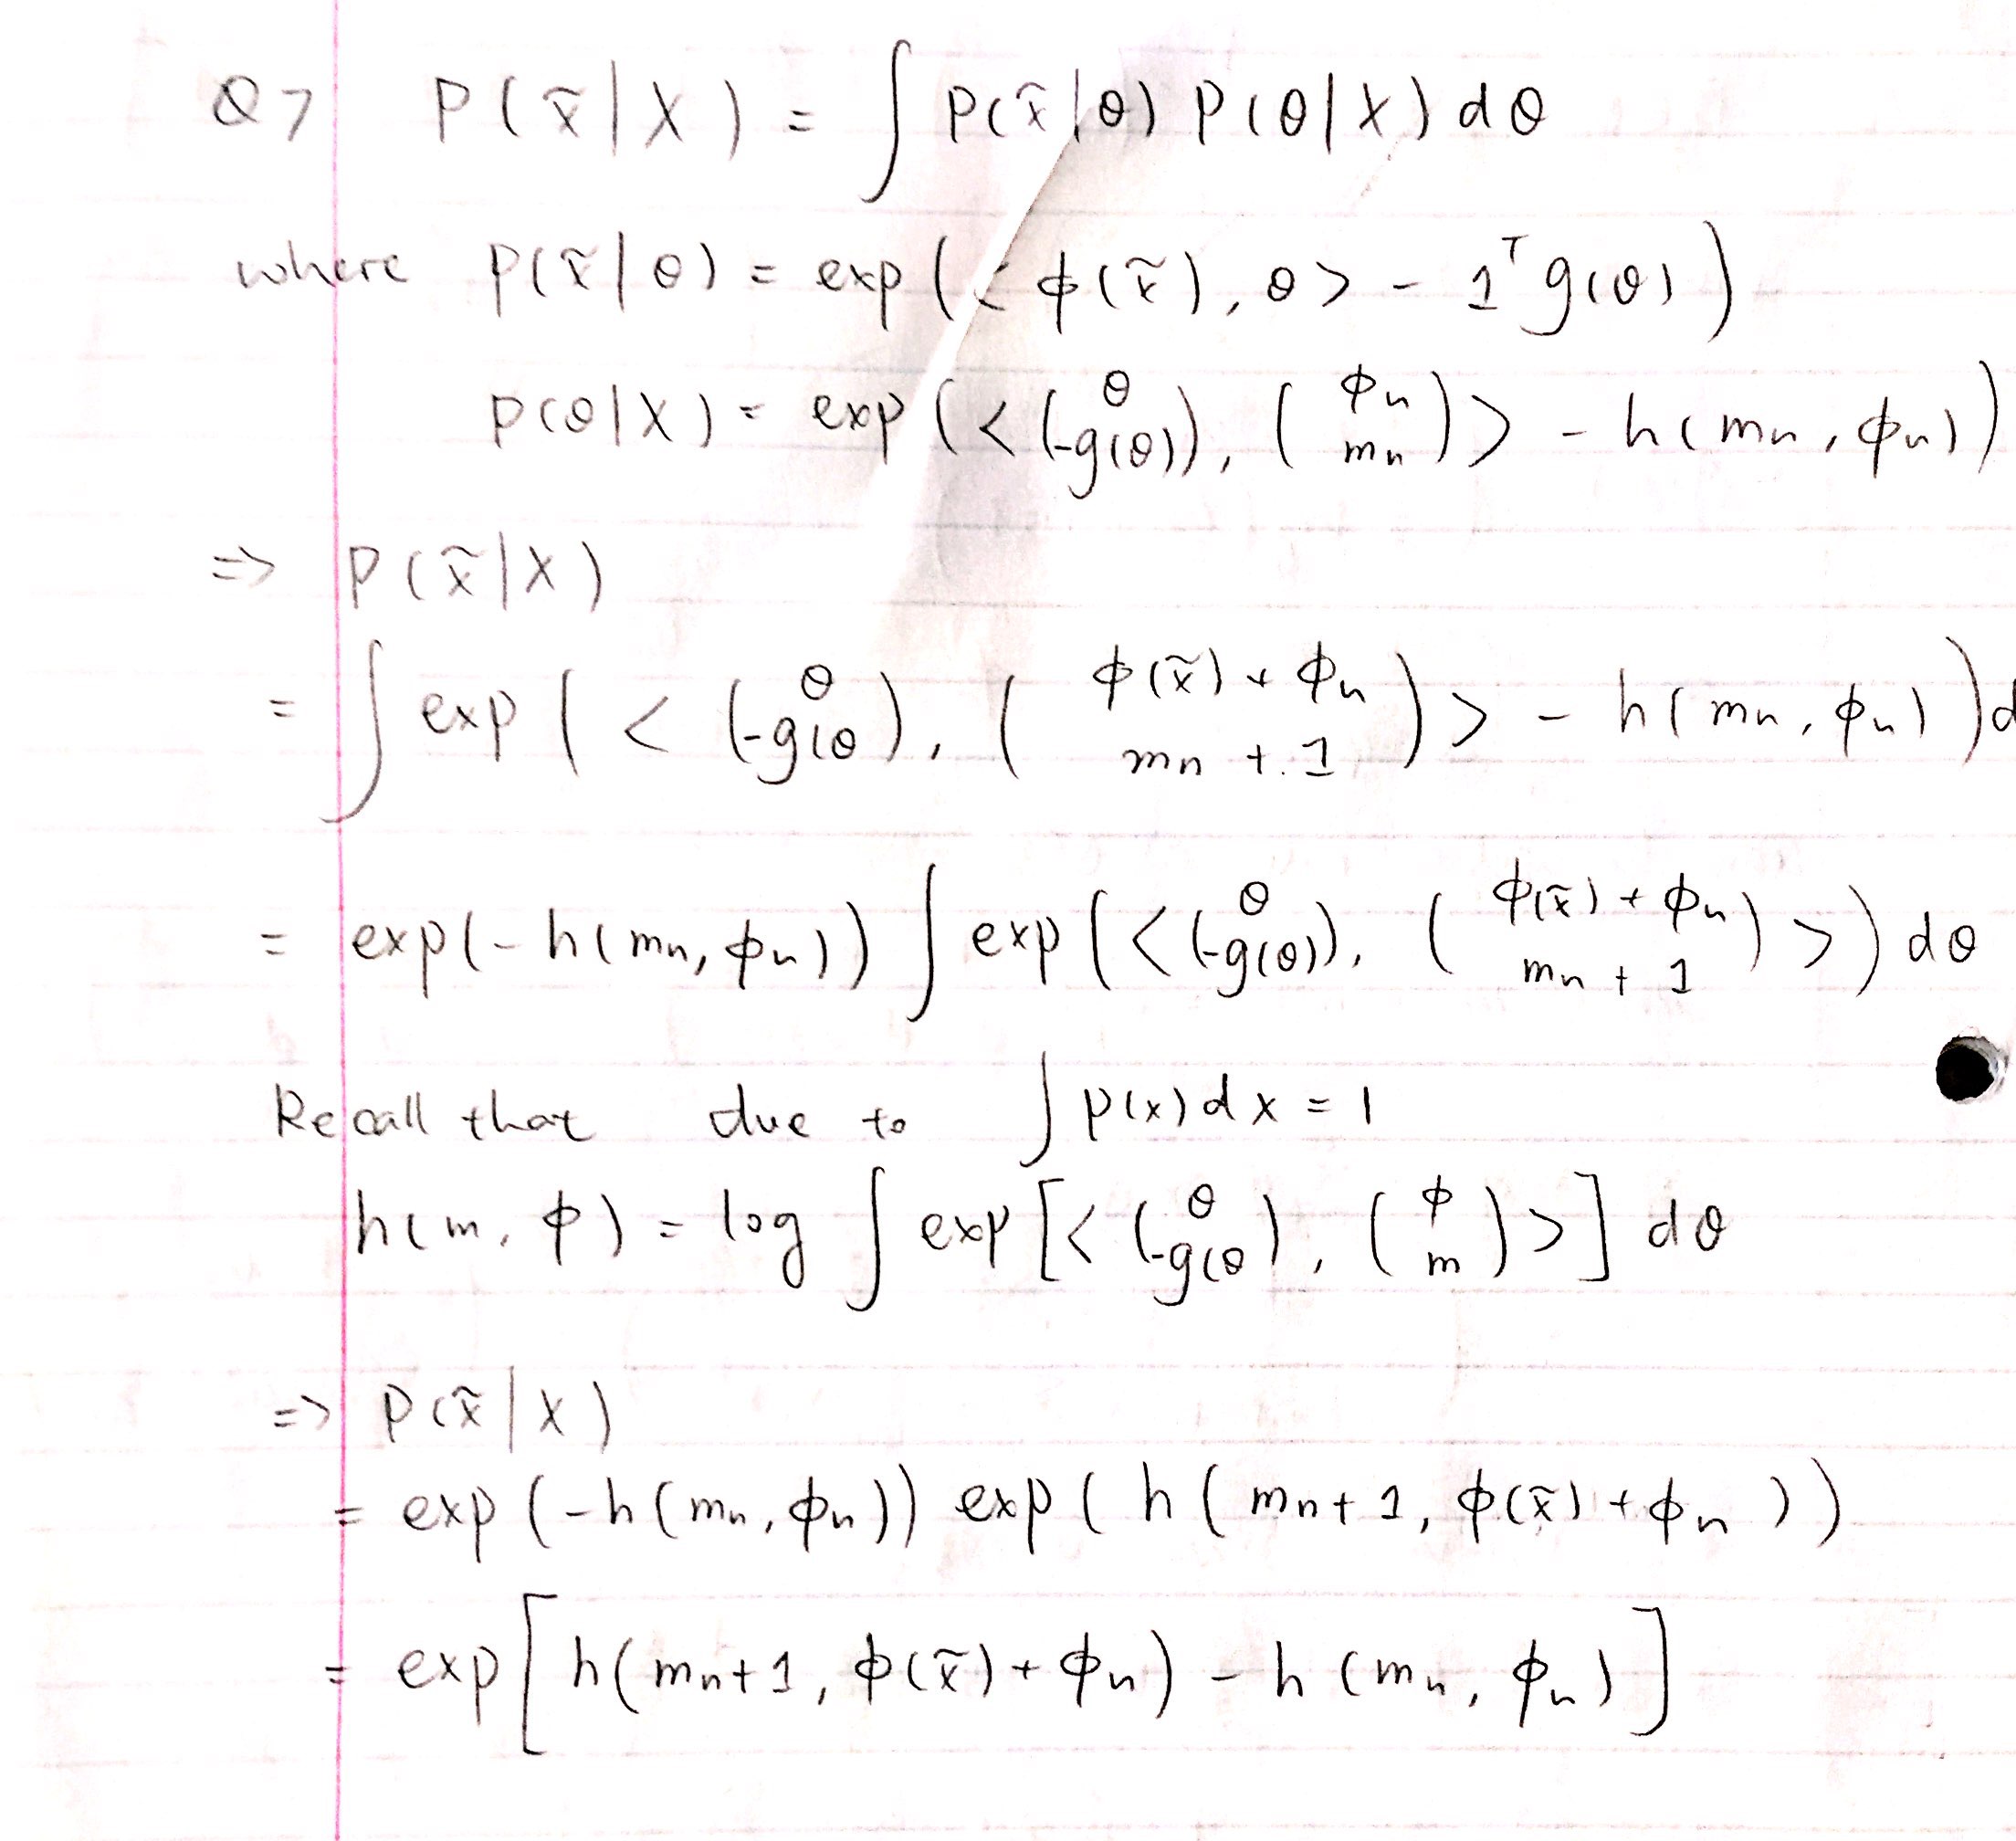 Q7 P(x̃|X) = ∫ P(x̃|θ) P(θ|X) dθ
where p(x̃|θ) = exp(<φ(x̃), θ> - 1ᵀg(θ))
p(θ|X) = exp(<(θ -g(θ)), (φₙ mₙ)> - h(mₙ, φₙ))
=> P(x̃|X)
= ∫ exp(<(θ -g(θ), (φ(x̃) + φₙ mₙ + 1)> - h(mₙ, φₙ))d
= exp(-h(mₙ, φₙ)) ∫ exp(<(θ -g(θ)), (φ(x̃) + φₙ mₙ + 1)>) dθ
Recall that due to ∫ p(x) dx = 1
h(m, φ) = log ∫ exp[<(θ -g(θ), (φ m)>] dθ
=> P(x̃|X)
= exp(-h(mₙ, φₙ)) exp(h(mₙ+1, φ(x̃) + φₙ))
= exp[h(mₙ+1, φ(x̃) + φₙ) - h(mₙ, φₙ)]